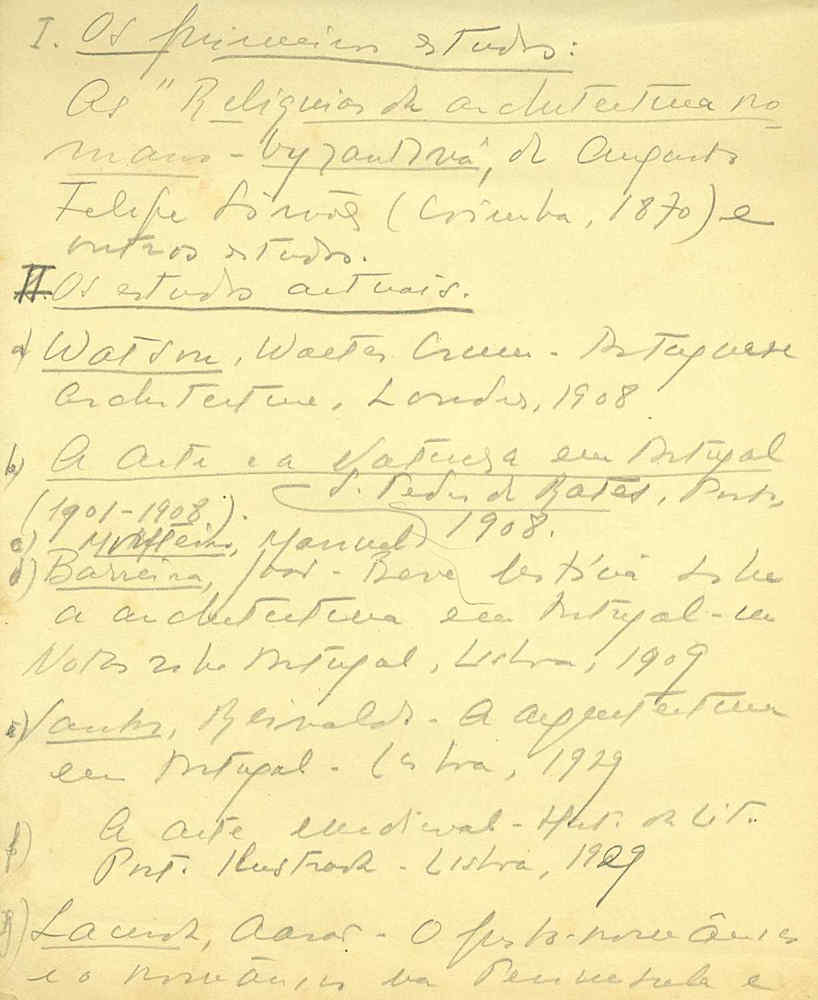 I. Os primeiros estudos:
As "Reliquias da architectura ro
mano-byzantina", de Augusto
Felipe Simões (Coimbra, 1870) e
outros estudos.
II. Os estudos actuais.
a) Watson, Walter Crum - Portuguese
Architecture, Londres, 1908
b) A Arte e a Natureza em Portugal
(1901-1908).
c) Monteiro, Manuel S. Pedro de Rates, Porto, 1908.
d) Barreira, João - Breve sobre
a architectura em Portugal - in
Notas sobre Portugal, Lisboa, 1909
e) Santos, Reinaldo - A arquitectura
em Portugal - Lisboa, 1929
f) A arte medieval - Hist. da Lit.
Port. Ilustrada - Lisboa, 1929
g) Lacerda, Aarão - O proto-românico
e o românico na Peninsula e